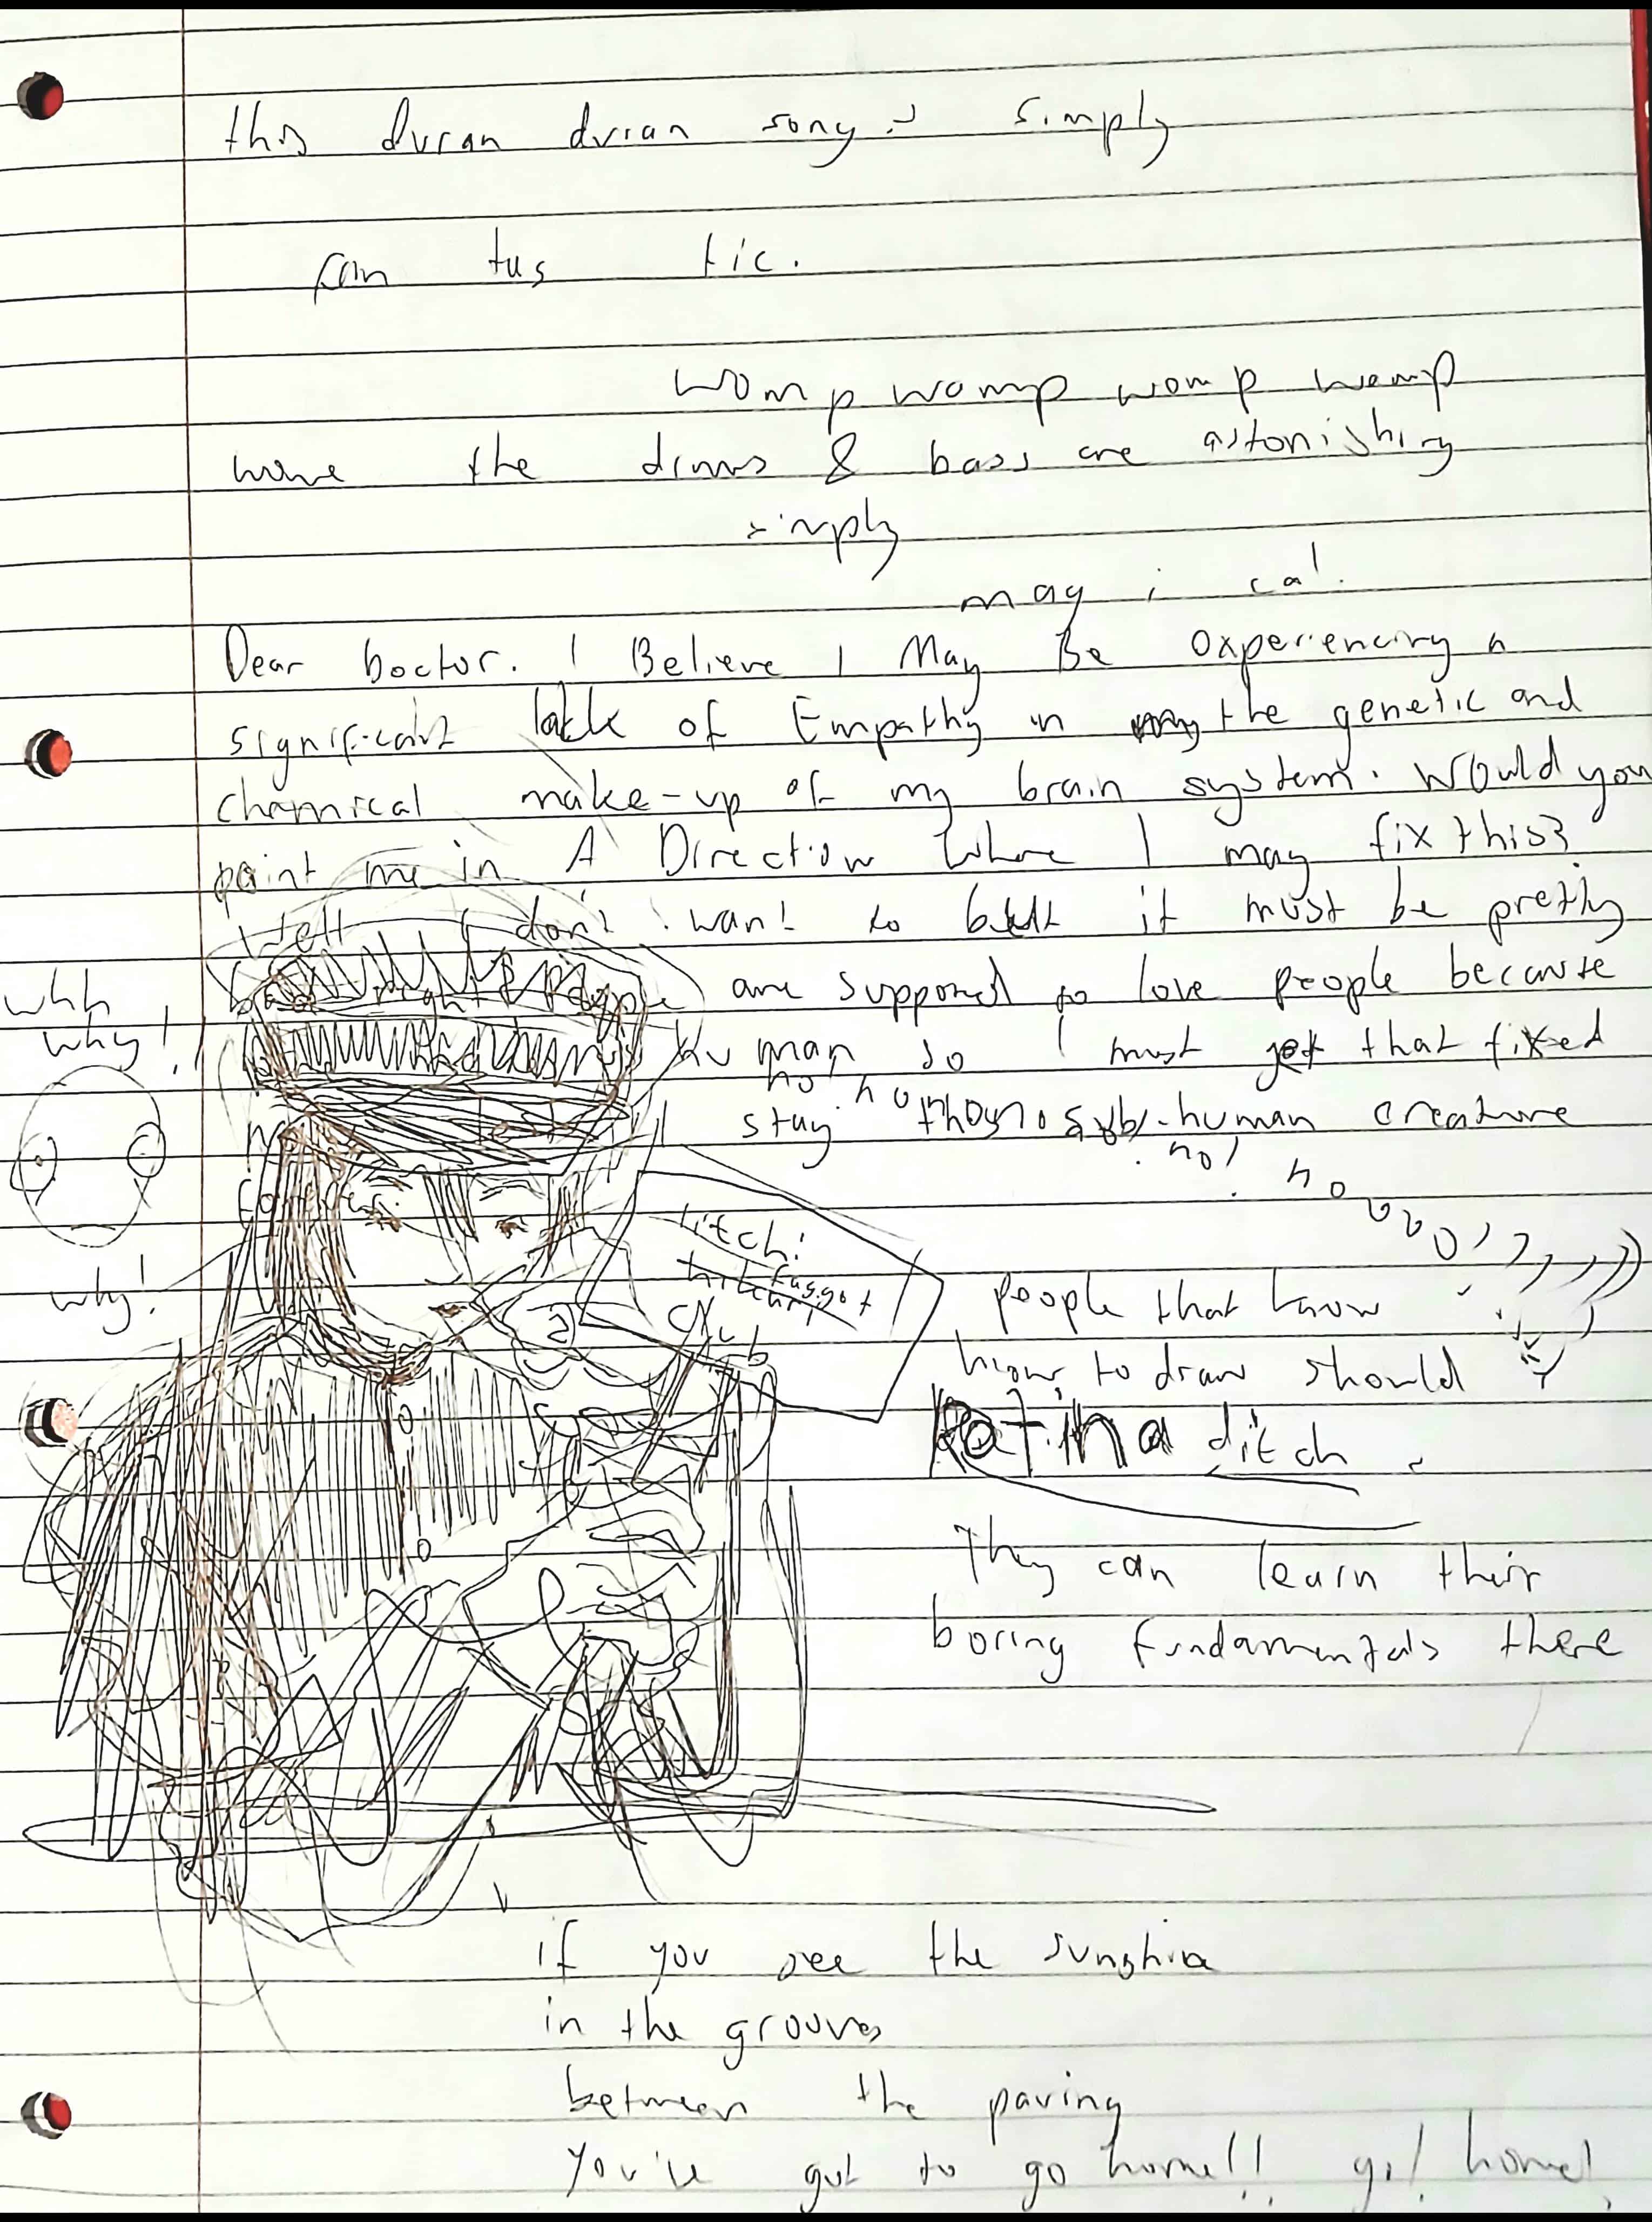 this duran duran song is simply
fan tus tic.
womp womp womp womp
wowe the drums & bass are astonishing
simply
mag i cal.
Dear Doctor. I Believe I May Be experiencing a
significant lack of Empathy in the genetic and
chemical make-up of my brain system. Would you
point me in A Direction Where I may fix this?
Well I don't want to but it must be pretty
people are supposed to love people because
whh
why!!
human so I must get that fixed
no! no no
stay sub-human creature
no! no
ooo
why!
Litch:
faggot
club
people that know
how to draw should
Rot in a ditch
They can learn their
boring fundamentals there
if you see the sunshine
in the grooves
between the paving
you've got to go home!! go! home!